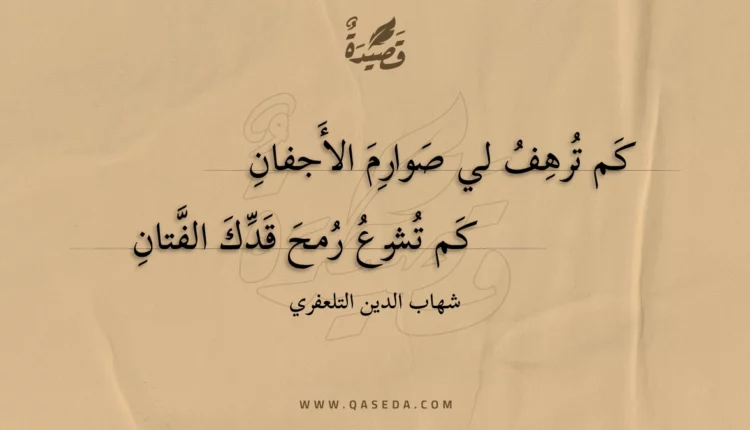 قَصِيدَةٌ
كَم تُرهِفُ لي صَوارِمَ الأَجفانِ
كَم تُشرِعُ رُمحَ قَدِّكَ الفَتّانِ
شهاب الدين التلعفري
WWW.QASEDA.COM